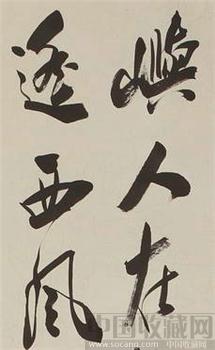 嶼人在
逶西風
中国收藏网
www.socang.com
中国收藏网